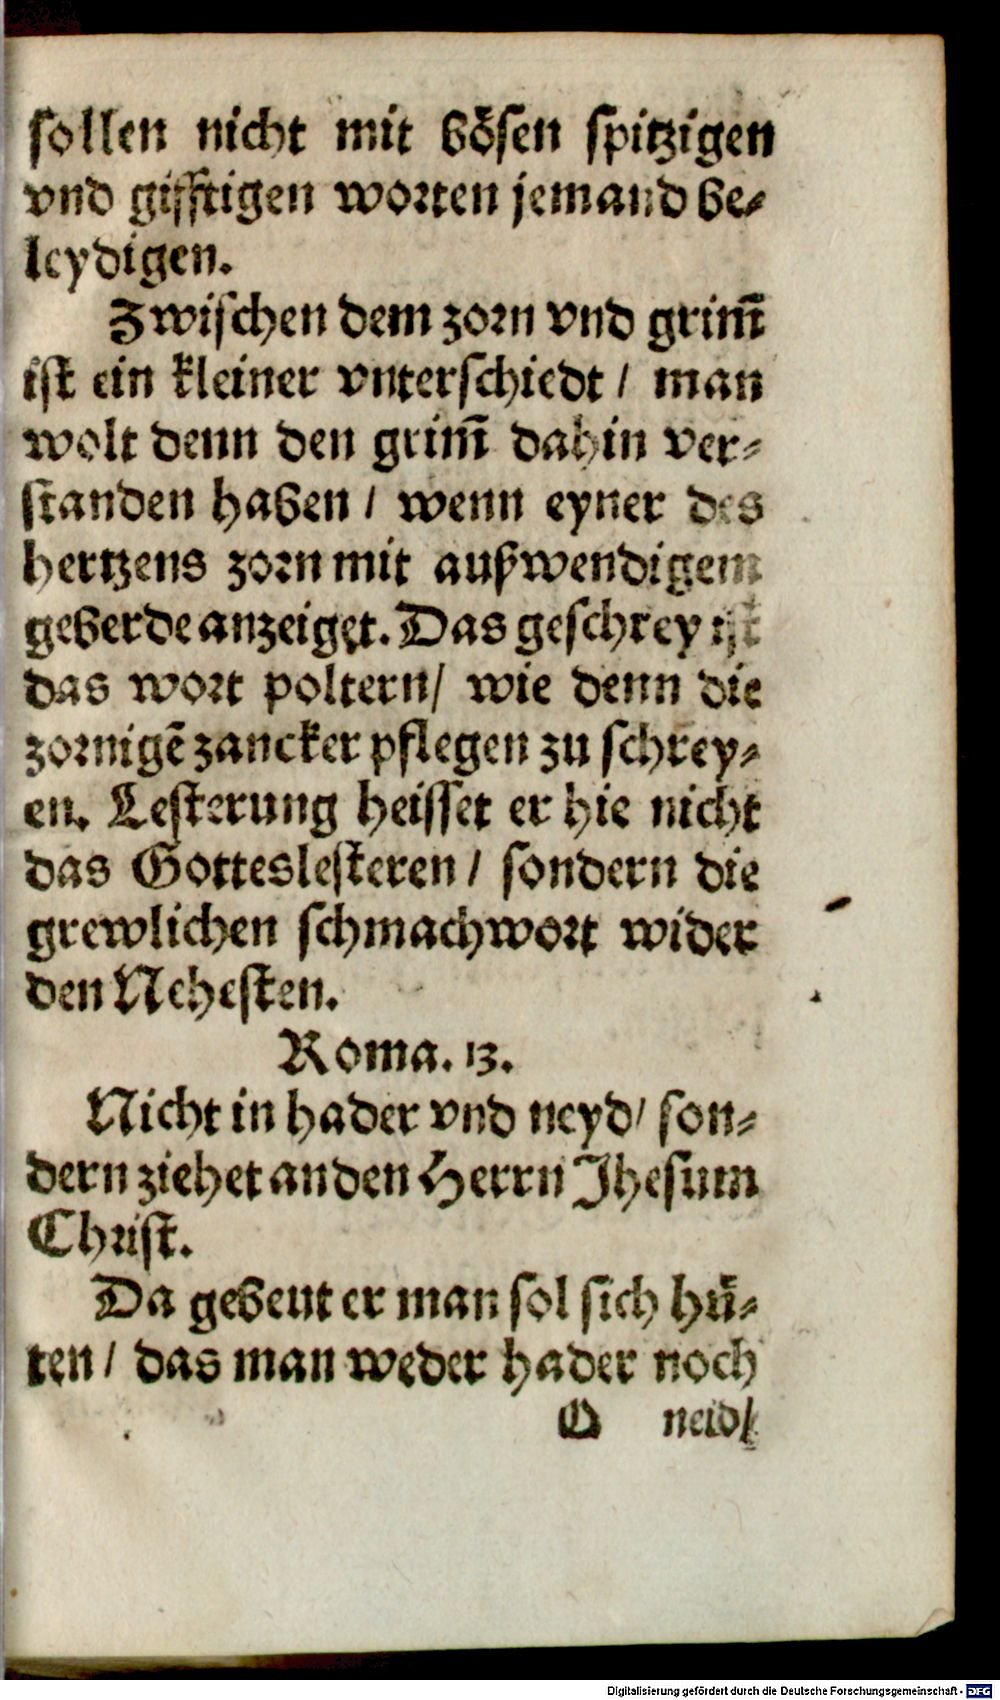 sollen nicht mit bösen spitzigen
vnd gifftigen worten jemand be⸗
leydigen.
Zwischen dem zorn vnd grim̃
ist ein kleiner vnterschiedt / man
wolt denn den grim̃ dahin ver⸗
standen haben / wenn eyner des
hertzens zorn mit außwendigem
geberde anzeiget. Das geschrey ist
das wort poltern / wie denn die
zornigẽ zancker pflegen zu schrey⸗
en. Lesterung heisset er hie nicht
das Gotteslesteren / sondern die
grewlichen schmachwort wider
den Nehesten.
Roma. 13.
Nicht in hader vnd neyd / son⸗
dern ziehet an den Herrn Jhesum
Christ.
Da gebeut er man sol sich hü⸗
ten / das man weder hader noch
O neid /
Digitalisierung gefördert durch die Deutsche Forschungsgemeinschaft - DFG